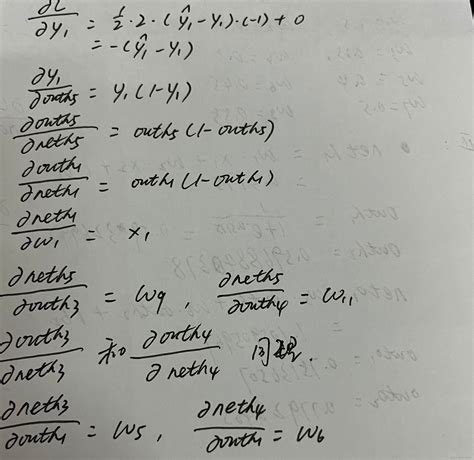 ∂L/∂y₁ = 1/2 · 2 · (ŷ₁ - y₁) · (-1) + 0
= -(ŷ₁ - y₁)
∂y₁/∂outh₅ = y₁(1-y₁)
∂outh₅/∂neth₅ = outh₅(1-outh₅)
∂outh₁/∂neth₁ = outh₁(1-outh₁) =
∂neth₁/∂w₁ = x₁
∂neth₅/∂outh₃ = w₉, ∂neth₅/∂outh₄ = w₁₁
∂outh₃/∂neth₃ 和 ∂outh₄/∂neth₄ 同理.
∂neth₃/∂outh₁ = w₅, ∂neth₄/∂outh₁ = w₆